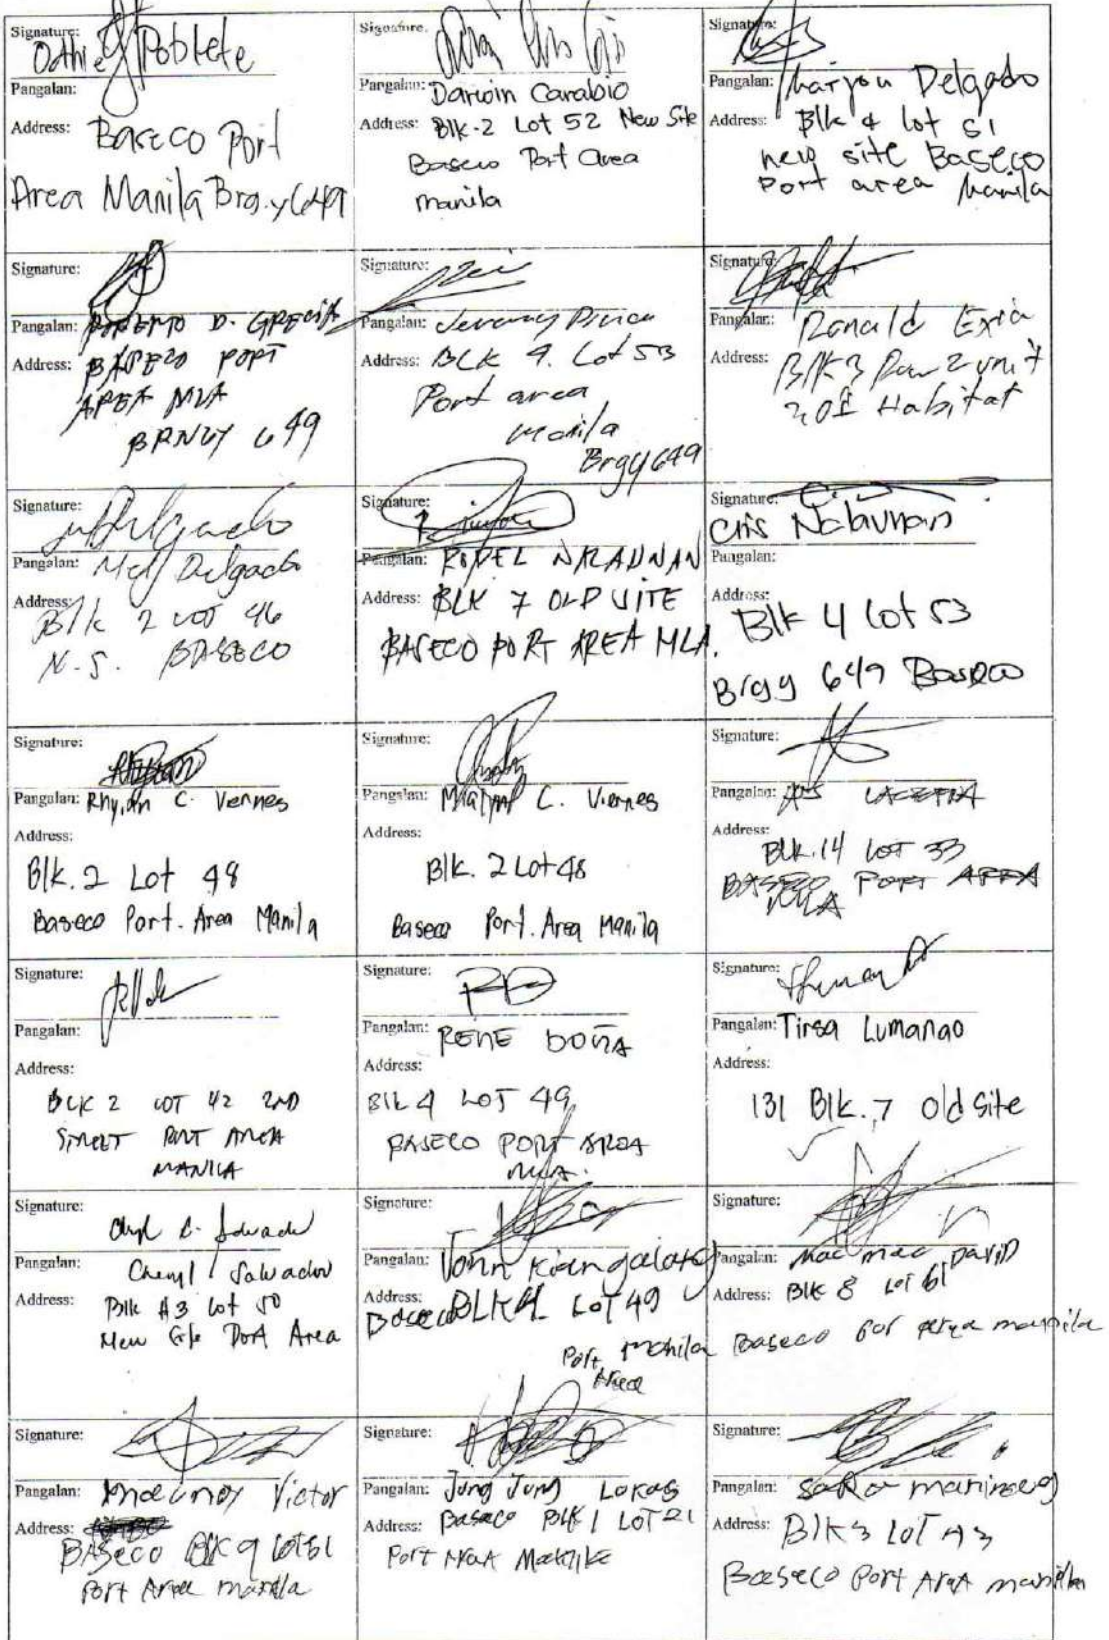 Signature:
Odthie Poblete
Pangalan:
Address: Baseco Port
Area Manila Brg.y 649
Signature:
Pangalan: Darwin Carabio
Address: Blk-2 Lot 52 New Site
Baseco Port Area
manila
Signature:
Pangalan: Delgado
Address: Blk 4 lot 51
new site Baseco
Port area Manila
Signature:
Pangalan: D. GRECIA
Address: BASECO PORT
AREA MLA
BRNGY 649
Signature:
Pangalan: Jeremy
Address: BLK 9. Lot 53
Port area
Manila
Brgy 649
Signature:
Pangalan: Ronald Exia
Address: Blk 3 Row 2 unit
201 Habitat
Signature:
Pangalan: Mel Delgado
Address: Blk 2 LOT 46
N.S. BASECO
Signature:
Pangalan: RONEL NABUNAN
Address: BLK 7 OLD SITE
BASECO PORT AREA MLA.
Signature:
Cris Nabunan
Pangalan:
Address:
Blk 4 lot 53
Brgy 649 Baseco
Signature:
Pangalan: Rhyian C. Viernes
Address:
Blk. 2 Lot 48
Baseco Port. Area Manila
Signature:
Pangalan: C. Viernes
Address:
Blk. 2 Lot 48
Baseco Port. Area Manila
Signature:
Pangalan: LACERNA
Address:
BLK.14 LOT 33
BASECO PORT AREA
MLA
Signature:
Pangalan:
Address:
BLK 2 LOT 42 2ND
STREET PORT AREA
MANILA
Signature:
Pangalan: RENE DOÑA
Address:
BLK 4 LOT 49
BASECO PORT AREA
MLA.
Signature:
Pangalan: Tirsa Lumanao
Address:
131 Blk. 7 Old Site
Signature:
Pangalan: Cheryl Salvador
Address: Blk #3 lot 50
New Site Port Area
Signature:
Pangalan: Vonn Kian
Address: Baseco BLK 4 LoT 49
Port Manila
Area
Signature:
Pangalan: mac mac DAVID
Address: Blk 8 LoT 61
Baseco manila
Signature:
Pangalan: Victor
Address:
BASeco BLK 9 LOT 51
Port Area manila
Signature:
Pangalan: Jung Jung Lokas
Address: Baseco Blk 1 LOT 21
Port AreA
Signature:
Pangalan:
Address: Blk 3 LoT 43
Baseco Port AreA manila